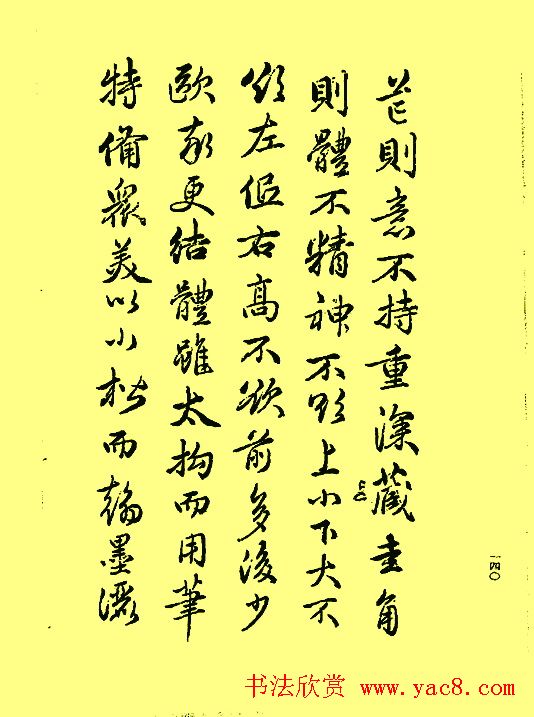 芒則意不持重深藏圭角
則體不精神不欲上小下大不
欲左低右高不欲前多後少
歐率更結體雖太拘而用筆
特備衆美以小楷而翰墨灑
一四〇
书法欣赏 www.yac8.com